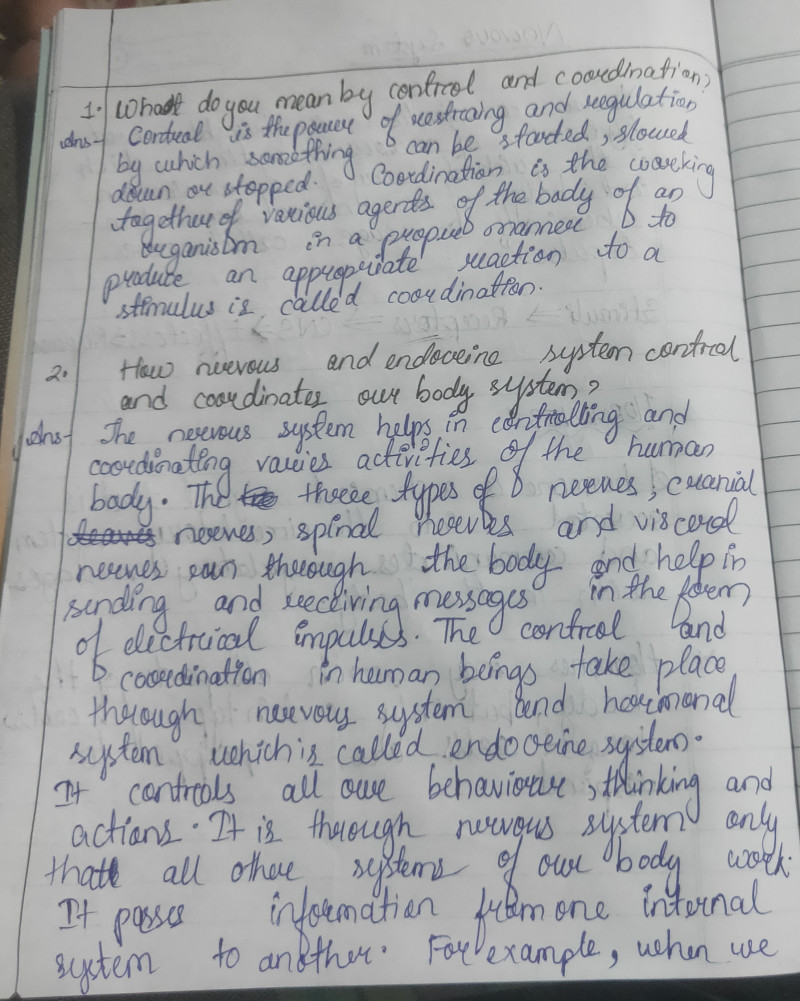 1. What do you mean by control and coordination?
Ans- Control is the power of restrcaing and regulation
by which something can be started, slowed
down or stopped. Coordination is the working
together of various agents of the body of an
organism in a proper manner to
produce an appropriate reaction to a
stimulus is called coordination.
2. How nervous and endocrine system control
and coordinates our body system?
Ans- The nervous system helps in controlling and
coordinating varies activities of the human
body. The three types of nerves, cranial
nerves, spinal nerves and visceral
nerves run through the body and help in
sending and receiving messages in the form
of electrical impulses. The control and
coordination in human beings take place
through nervous system and hormonal
system which is called endocrine system.
It controls all our behaviour, thinking and
actions. It is through nervous system only
that all other systems of our body work.
It passes information from one internal
system to another. For example, when we